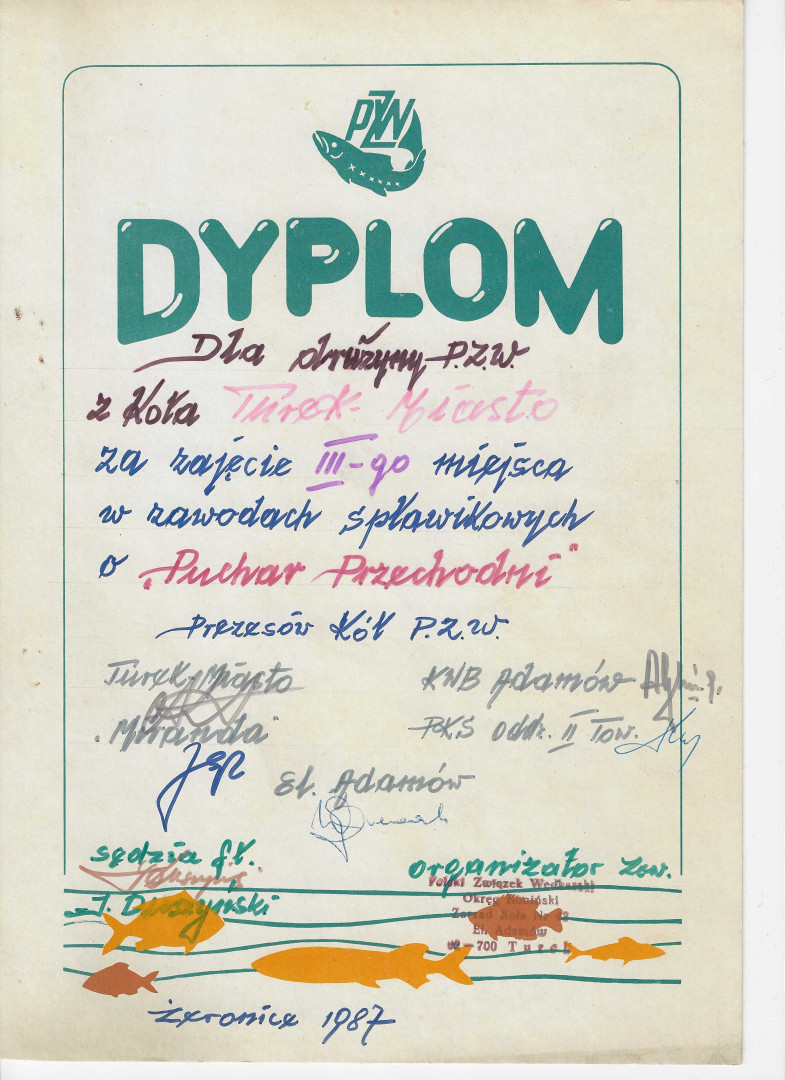 PZW
DYPLOM
Dla drużyny P.Z.W.
z Koła Turek-Miasto
za zajęcie III-go miejsca
w zawodach spławikowych
o „Puchar Przechodni"
Prezesów Kół P.Z.W.
Turek-Miasto
KWB Adamów
„Miranda"
PKS Oddz. II Tow.
El. Adamów
sędzia gł.
organizator zaw.
J. Duszyński
Polski Związek Wędkarski
Okręg Koniński
Zarząd Koła Nr
El. Adamów
62-700 Turek
Żeronice 1987